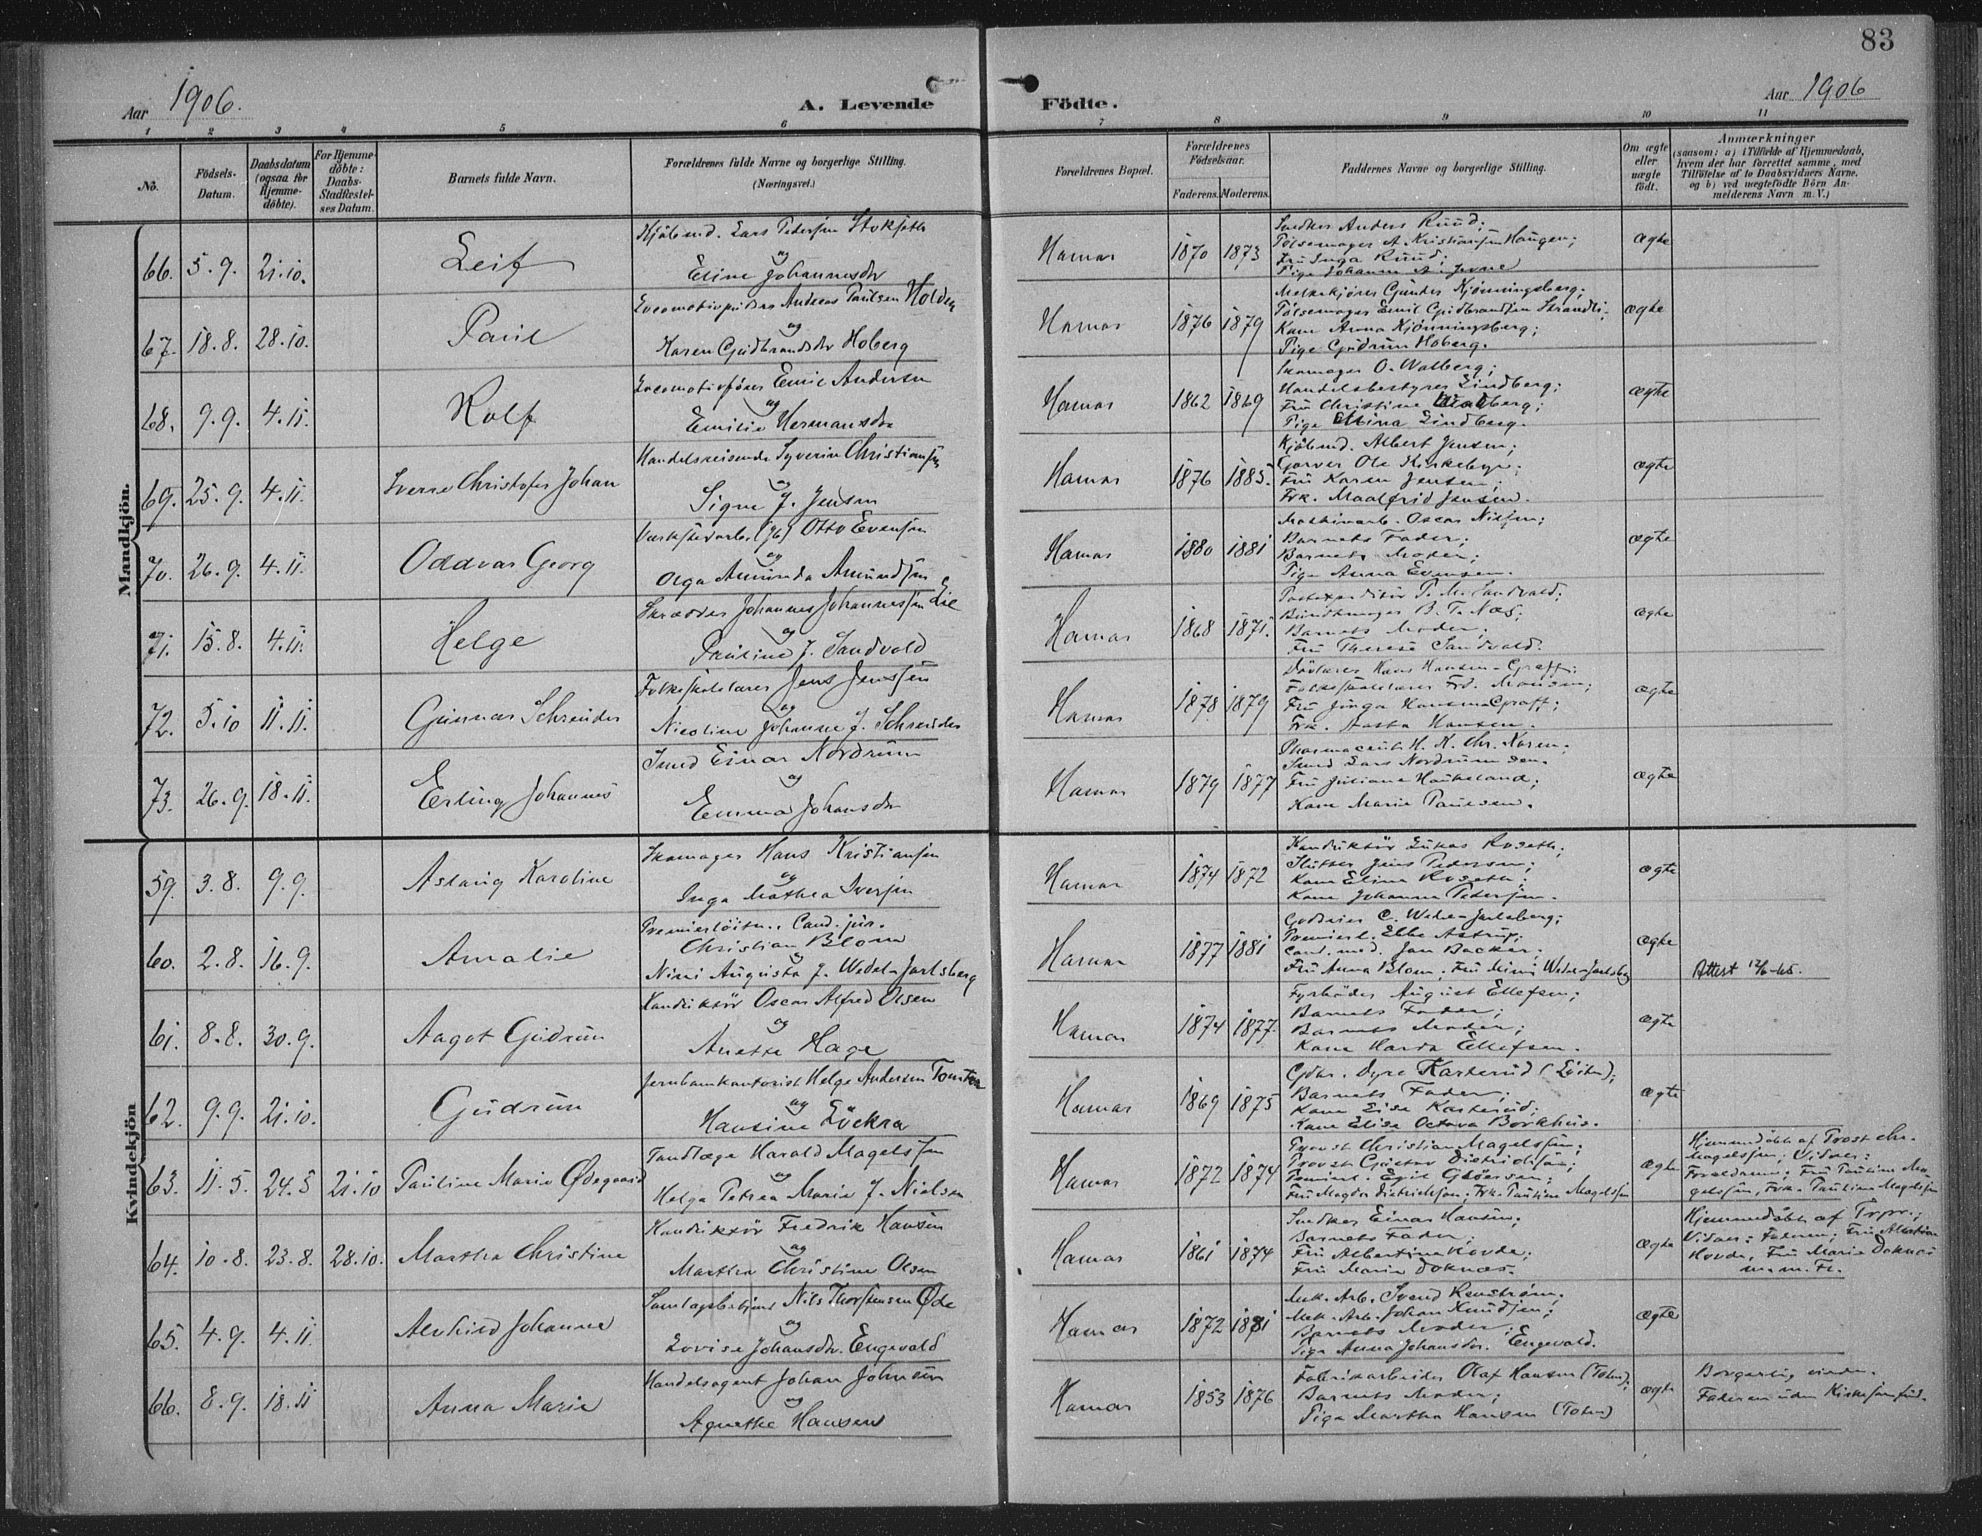 83
Aar 1906.
A. Levende Födte.
Aar 1906
1 2 3 4 5 6 7 8 9 10 11
No.
Födsels-Datum.
Daabsdatum (ogsaa for Hjemme-döbte).
For Hjemme-döbte: Daabs-Stadfæstel-ses Datum.
Barnets fulde Navn.
Forældrenes fulde Navne og borgerlige Stilling. (Næringsvei.)
Forældrenes Bopæl.
Forældrenes Födselsaar.
Faderens. Moderens.
Faddernes Navne og borgerlige Stilling.
Om ægte eller uægte födt.
Anmærkninger
(saasom: a) i Tilfælde af Hjemmedaab, hvem der har forrettet samme, med Tilföielse af to Daabsvidners Navne, og b) ved uægtefödte Börn An-melderens Navn m. V.)
Mandkjön.
66. 5.9. 21.10. Leif
Kjöbmd. Lars Pedersen Stokseth
og
Eline Johannesdr
Hamar 1870 1873
Snedker Anders Ruud;
Pölsemager A. Kristiansen Haugen;
Fru Inga Ruud;
ægte
67. 18.8. 28.10. Paul
Locomotivpudser Andreas Paulsen Holden
og
Karen Gudbrandsdr Hoberg
Hamar 1876 1879
Melkekjörer Gunder Kjönningsberg;
Pölsemager Emil Gudbrandsen Strandli;
Kone Anna Kjönningsberg;
Pige Gudrun Hoberg.
ægte
68. 9.9. 4.11. Rolf
Locomotivförer Emil Andersen
og
Emilie Hermansdr
Hamar 1862 1869
Skomager O. Walberg;
Handelsbestyrer Lindberg;
Fru Christine Walberg;
Pige Lindberg.
ægte
69. 25.9. 4.11. Sverre Christofer Johan
Handelsreisende Syverin Christiansen
og
Signe J. Jensen
Hamar 1876 1885.
Kjöbmd. Albert Jensen;
Garver Ole Kirkebye;
Fru Karen Jensen;
Frk. Maalfrid Jensen.
ægte
70. 26.9. 4.11. Oddvar Georg
Værkstedarb. (Jb) Otto Evensen
og
Olga Amunda Amundsen
Hamar 1880 1881
Maskinarb. Oscar Nilsen;
Barnets Fader;
Barnets Moder;
Pige Anna Evensen.
ægte
71. 15.8. 4.11. Helge
Skrædder Johannes Johannessen Lie
og
Pauline J. Sandvold
Hamar 1868 1871.
Postexpeditör P. M. Sandvold;
Bundtmager B. T. Næs;
Barnets Moder;
Fru Therese Sandvold.
ægte
72. 5.10 11.11. Gunnar Schreuder
Folkeskolelærer Jens Jenssen
og
Nicoline Johanne J. Schreuder
Hamar 1878 1879
Hans Hansen-Graff;
Folkeskolelærer Frd. Monsen;
Fru Hansen-Graff;
Frk. Aasta Hansen.
ægte
73. 26.9. 18.11. Erling Johannes
Smed Einar Nordrum
og
Emma Johansdr
Hamar 1879 1877
Pharmaceut H. K. Chr. Karen;
Smed Lars Nordrum sen.
Fru Juliane Haukeland;
Kone Marie Paulsen.
ægte
Kvindekjön
59. 3.8. 9.9. Aslaug Karoline
Skomager Hans Kristiansen
og
Inga Mathea Iversen
Hamar 1874 1872
Konduktör Lukas Roseth;
Slutter Jens Pedersen;
Kone Eline Roseth;
Kone Johanne Pedersen.
ægte
60. 2.8. 16.9. Amalie
Premierlöitn., Cand. jur.
Christian Blom
og
Nini Augusta J. Wedel-Jarlsberg
Hamar 1877 1881
Godseier C. Wedel-Jarlsberg;
Premierl. Ebbe Astrup;
Cand. med. Jan Backer;
Fru Anna Blom; Fru Mimi Wedel-Jarlsberg
ægte
Attest 12/6-65.
61. 8.8. 30.9. Aagot Gudrun
Konduktör Oscar Alfred Olsen
og
Anette Hage
Hamar 1874 1877.
Fyrböder August Ellefsen;
Barnets Fader;
Barnets Moder;
Kone Harda Ellefsen.
ægte
62. 9.9. 21.10. Gudrun
Jernbanekontorist Helge Andersen Tomter
og
Hansine Löckra
Hamar 1869 1875
Gdbr. Syver Karterud (Löiten);
Barnets Fader;
Kone Elise Karterud;
Kone Elise Octova Borkhus.
ægte
63. 11.5. 24.5 21.10 Pauline Marie Ødegaard
Tandlæge Harald Magelssen
og
Helga Petrea Marie J. Nielsen
Hamar 1872 1874
Provst Christian Magelssen;
Provst Gustav Dietrichson;
Premierl. Egil Gløersen;
Fru Magda Dietrichson; Frk. Pauline Magelssen
ægte
Hjemmedöbt af Provst Chr.
Magelssen; Vidner:
Forældrene; Fru Pauline Ma-
gelssen, Frk. Pauline Magelssen
64. 10.8. 23.8. 28.10. Martha Christine
Konduktör Fredrik Hansen
og
Martha Christine Olsen
Hamar 1861 1874
Snedker Einar Hansen;
Barnets Fader;
Fru Albertine Hovde;
Fru Marie Doknæs.
ægte
Hjemmedöbt af
Vidner: Faderen; Fru Albertine
Hovde, Fru Marie Doknæs
m.m. Fl.
65. 4.9. 4.11. Alvhild Johanne
Samlagsbetjent Nils Thorstensen Øde
og
Lovise Johansdr. Engevold
Hamar 1872 1881
Mek. Arb. Svend Renström;
Mek. Arb. Johan Knudsen;
Barnets Moder;
Pige Anna Johansdr. Engevold.
ægte
66. 8.9. 18.11 Anna Marie
Handelsagent Johan Johnsen
og
Agnethe Hansen
Hamar 1853 1876
Fabrikarbeider Olaf Hansen (Toten);
Barnets Moder;
Pige Martha Hansen (Toten)
ægte
Borgerlig viede.
Faderen uden Kirkesamfund.